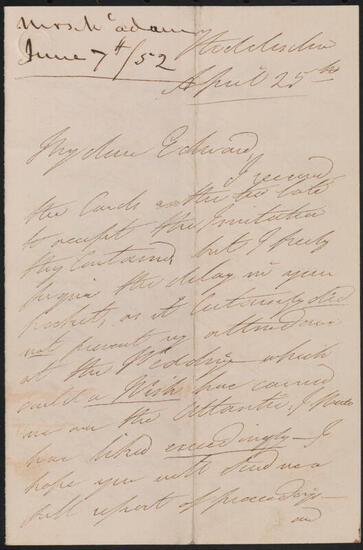 Mrs McAdam
June 7th/52
Hoddesdon
April 25th
My dear Edward,
I received
the Cards rather too late
to accept the Invitation
they Contained, but I freely
forgive the delay in your
pockets, as it Certainly did
not prevent my attendance
at the Wedding which
could a Wish have carried
me over the Atlantic, I should
have liked exceedingly — I
hope you will send me a
full report of proceedings —
and